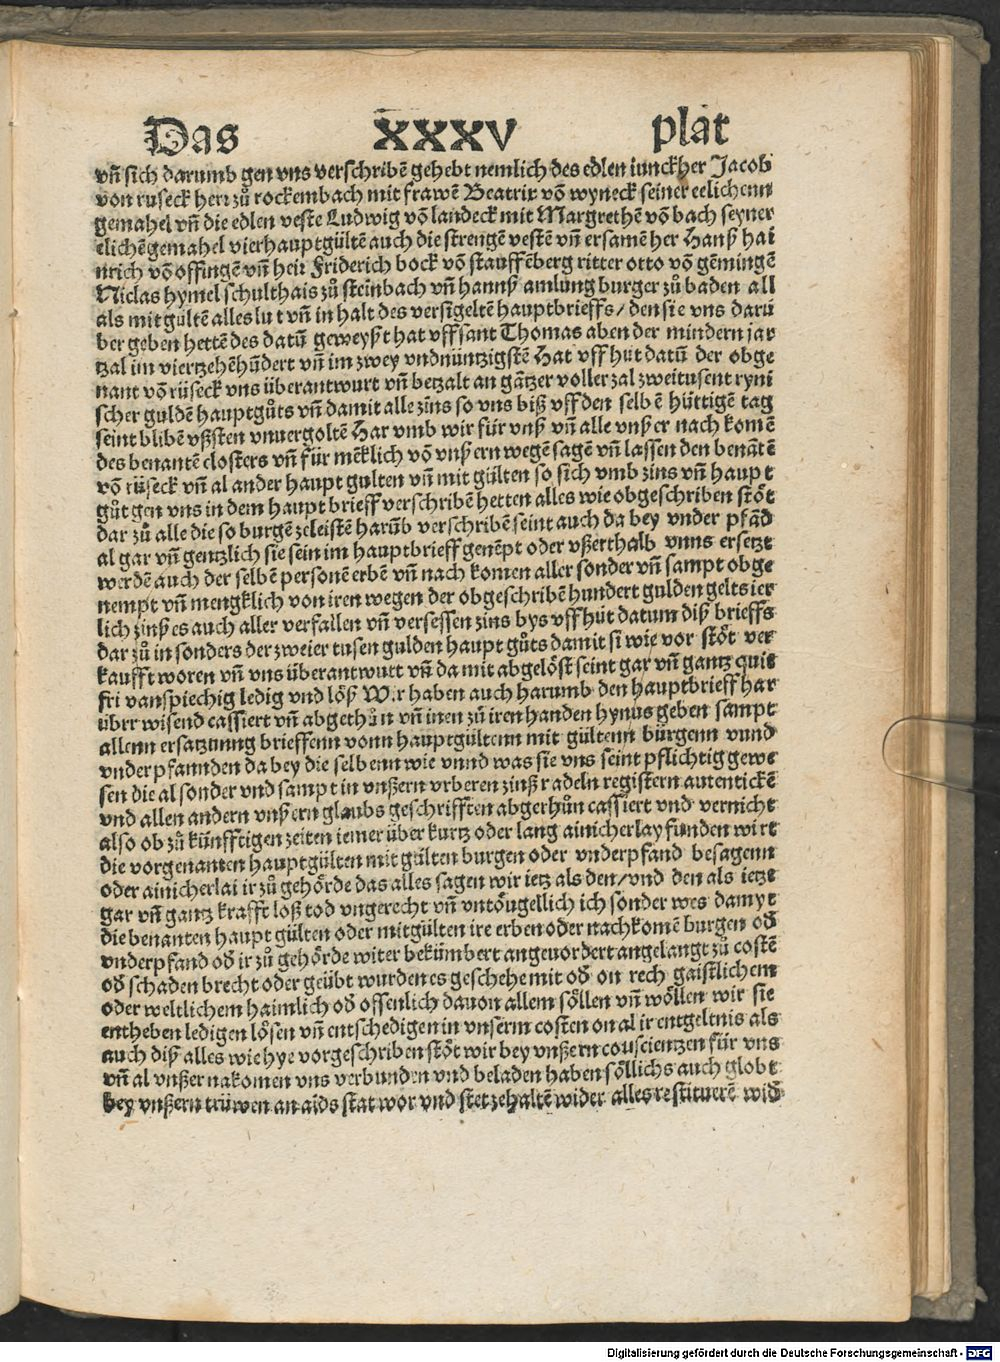 Das XXXV plat
vñ sich darumb gen vns verschribẽ gehebt nemlich des edlen iunckher Jacob
von ruseck herr zů rockembach mit frawẽ Beatrix võ wyneck seiner eelichenn
gemahel vñ die edlen veste Ludwig võ landeck mit Margrethẽ võ bach seyner
elichẽ gemahel vier hauptgültẽ auch die strengẽ vestẽ vñ ersamẽ her Hanß hai
nrich võ offingẽ vñ herr Friderich bock võ stauffẽberg ritter otto võ gẽmingẽ
Niclas hymel schulthais zů steinbach vñ hannß amlung burger zů baden all
als mit gültẽ alles lut vñ in halt des versigeltẽ hauptbrieffs/ den sie vns darü
ber geben hettẽ des datũ geweyßt hat vff sant Thomas aben der mindern jar
tzal im viertzehẽhũdert vñ im zwey vndnüntzigstẽ Hat vff hüt datũ der obge
nant võ rüseck vns überantwurt vñ betzalt an gãtzer voller zal zweitusent ryni
scher guldẽ hauptgůts vñ damit alle zins so vns biß vff den selbẽ hüttigẽ tag
seint blibẽ vßsten vnuergoltẽ Har vmb wir für vnß vñ alle vnß er nach komẽ
des benantẽ closters vñ für mẽklich võ vnß ern wegẽ sagẽ vñ lassen den benãtẽ
võ rüseck vñ al ander haupt gulten vñ mit gülten so sich vmb zins vñ haupt
gůt gen vns in dem haupt brieff verschribẽ hetten alles wie obgeschriben stöt
dar zů alle die so burgẽ zeleistẽ harũb verschribẽ seint auch da bey vnder pfãd
al gar vñ gentzlich sie sein im hauptbrieff genẽpt oder vßerthalb vnns ersetzt
werdẽ auch der selbẽ personẽ erbẽ vñ nach komen aller sonder vñ sampt obge
nempt vñ mengklich von iren wegen der obgeschribẽ hundert gulden gelts ier
lich zinß es auch aller verfallen vñ versessen zins bys vff hüt datum diß brieffs
dar zů in sonders der zweier tusen gulden haupt gůts damit si wie vor stöt ver
kaufft woren vñ vns überantwurt vñ da mit abgelöst seint gar vñ gantz quit
fri vansprechig ledig vnd löß Wir haben auch harumb den hauptbrieff har
übrr wisend cassiert vñ abgethůn vñ inen zů iren handen hynus geben sampt
allenn ersatzunng brieffenn vonn hauptgültenn mit gültenn bürgenn vnnd
vnderpfannden da bey die selbenn wie vnnd was sie vns seint pflichtig gewe
sen die al sonder vnd sampt in vnßern vrberen zinß radeln registern autentickẽ
vnd allen andern vnß ern glaubs geschrifften abgethůn cassiert vnd vernicht
also ob zů künfftigen zeiten iemer über kurtz oder lang ainicherlay funden wirt
die vorgenanten hauptgülten mit gülten burgen oder vnderpfand besagenn
oder ainicherlai ir zů gehörde das alles sagen wir ietz als den/vnd den als ietzt
gar vñ gantz krafft loß tod vngerecht vñ vntöugellich ich sonder wes damyt
die benanten haupt gülten oder mitgülten ire erben oder nachkomẽ burgen oď
vnderpfand oď ir zů gehörde witer bekümbert angeuordert angelangt zů costẽ
oď schaden brecht oder geübt wurden es geschehe mit oď on rech gaistlichem
oder weltlichem haimlich oď offenlich dauon allem söllen vñ wöllen wir sie
entheben ledigen lösen vñ entschedigen in vnserm costen on al ir entgeltnis als
auch diß alles wie hye vorgeschriben stöt wir bey vnßern couscientzen für vns
vñ al vnßer nakomen vns verbunden vnd beladen haben söllichs auch globt
bey vnßern trüwen an aids stat wor vnd stet zehaltẽ wider alles restituerẽ wiď
Digitalisierung gefördert durch die Deutsche Forschungsgemeinschaft - DFG